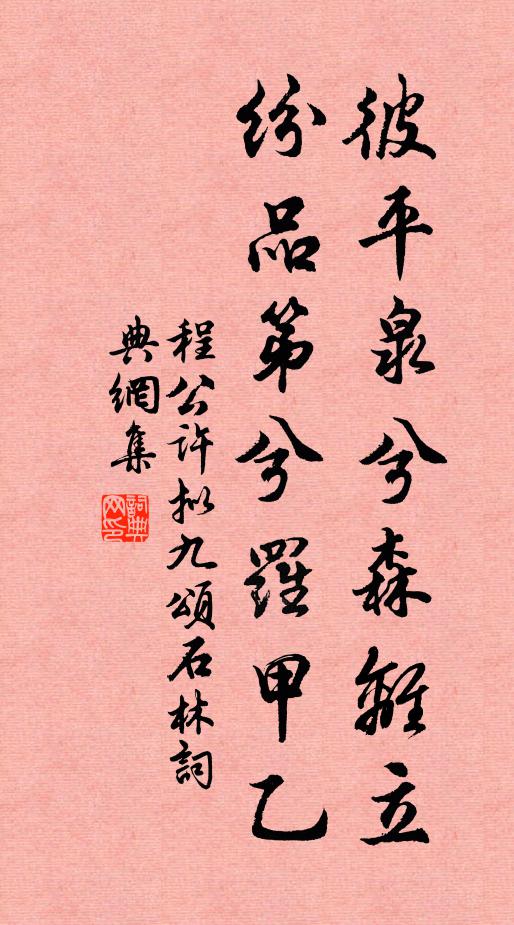 彼平泉兮森離立
紛品第兮羅甲乙
程公許擬九頌石林詞
典網集
詞典網印